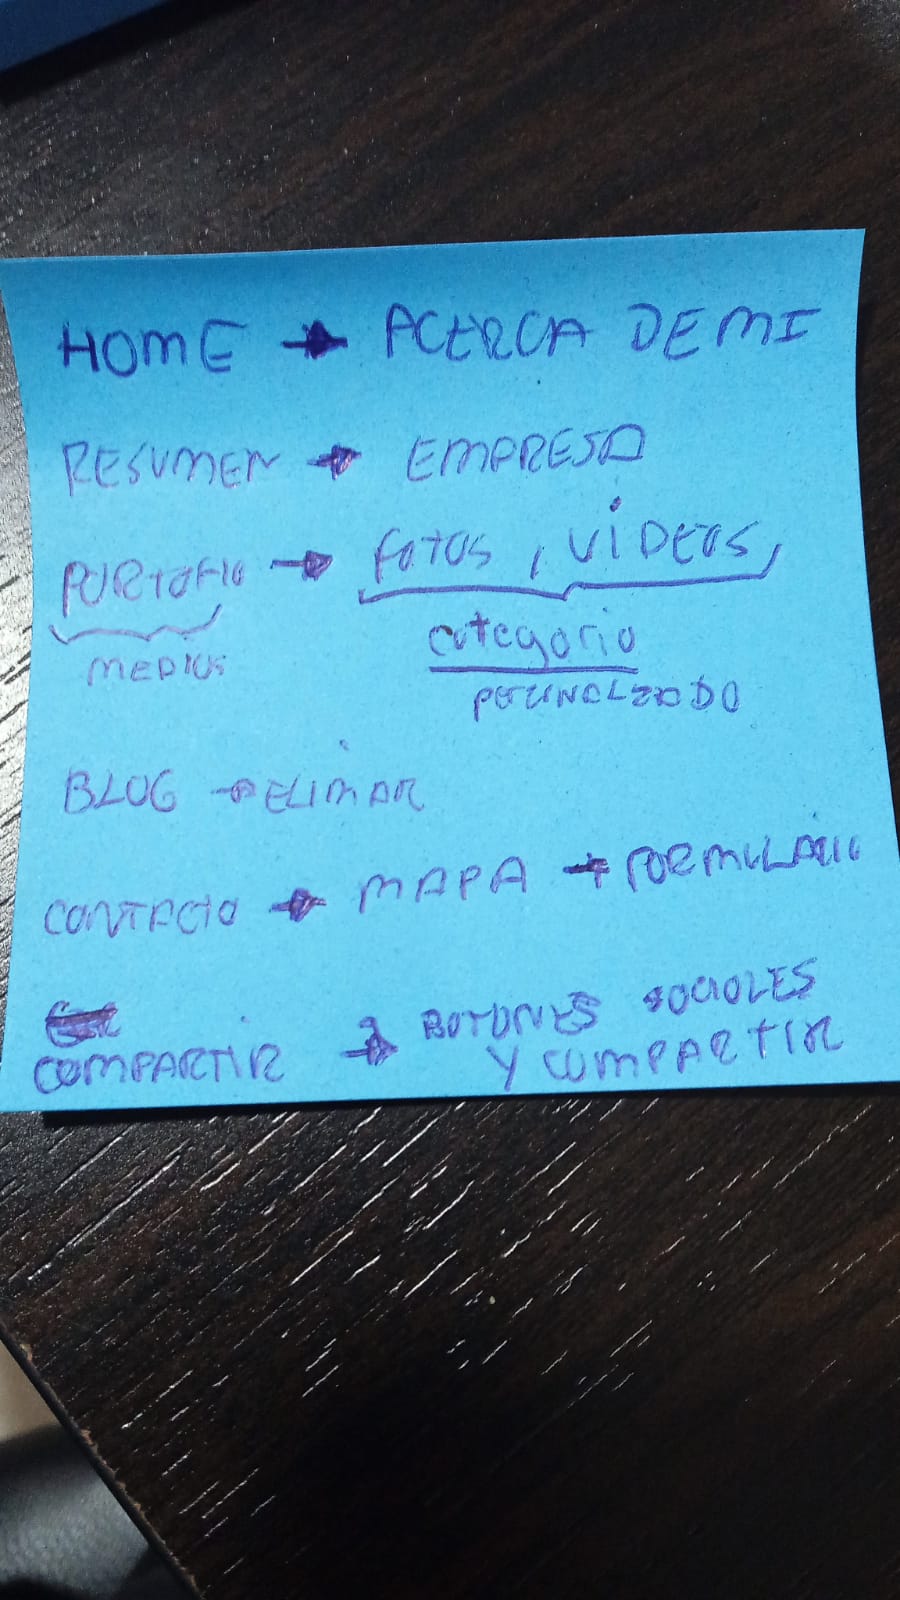 HOME → ACERCA DE MI
RESUMEN → EMPRESA
PORTOFIO → fotos, VIDEOS,
MEDIOS
categoria
PERZONALIZADO
BLOG → ELIMAR
CONTACTO → MAPA → FORMULARIO
COMPARTIR → BOTONES SOCIALES
Y COMPARTIR